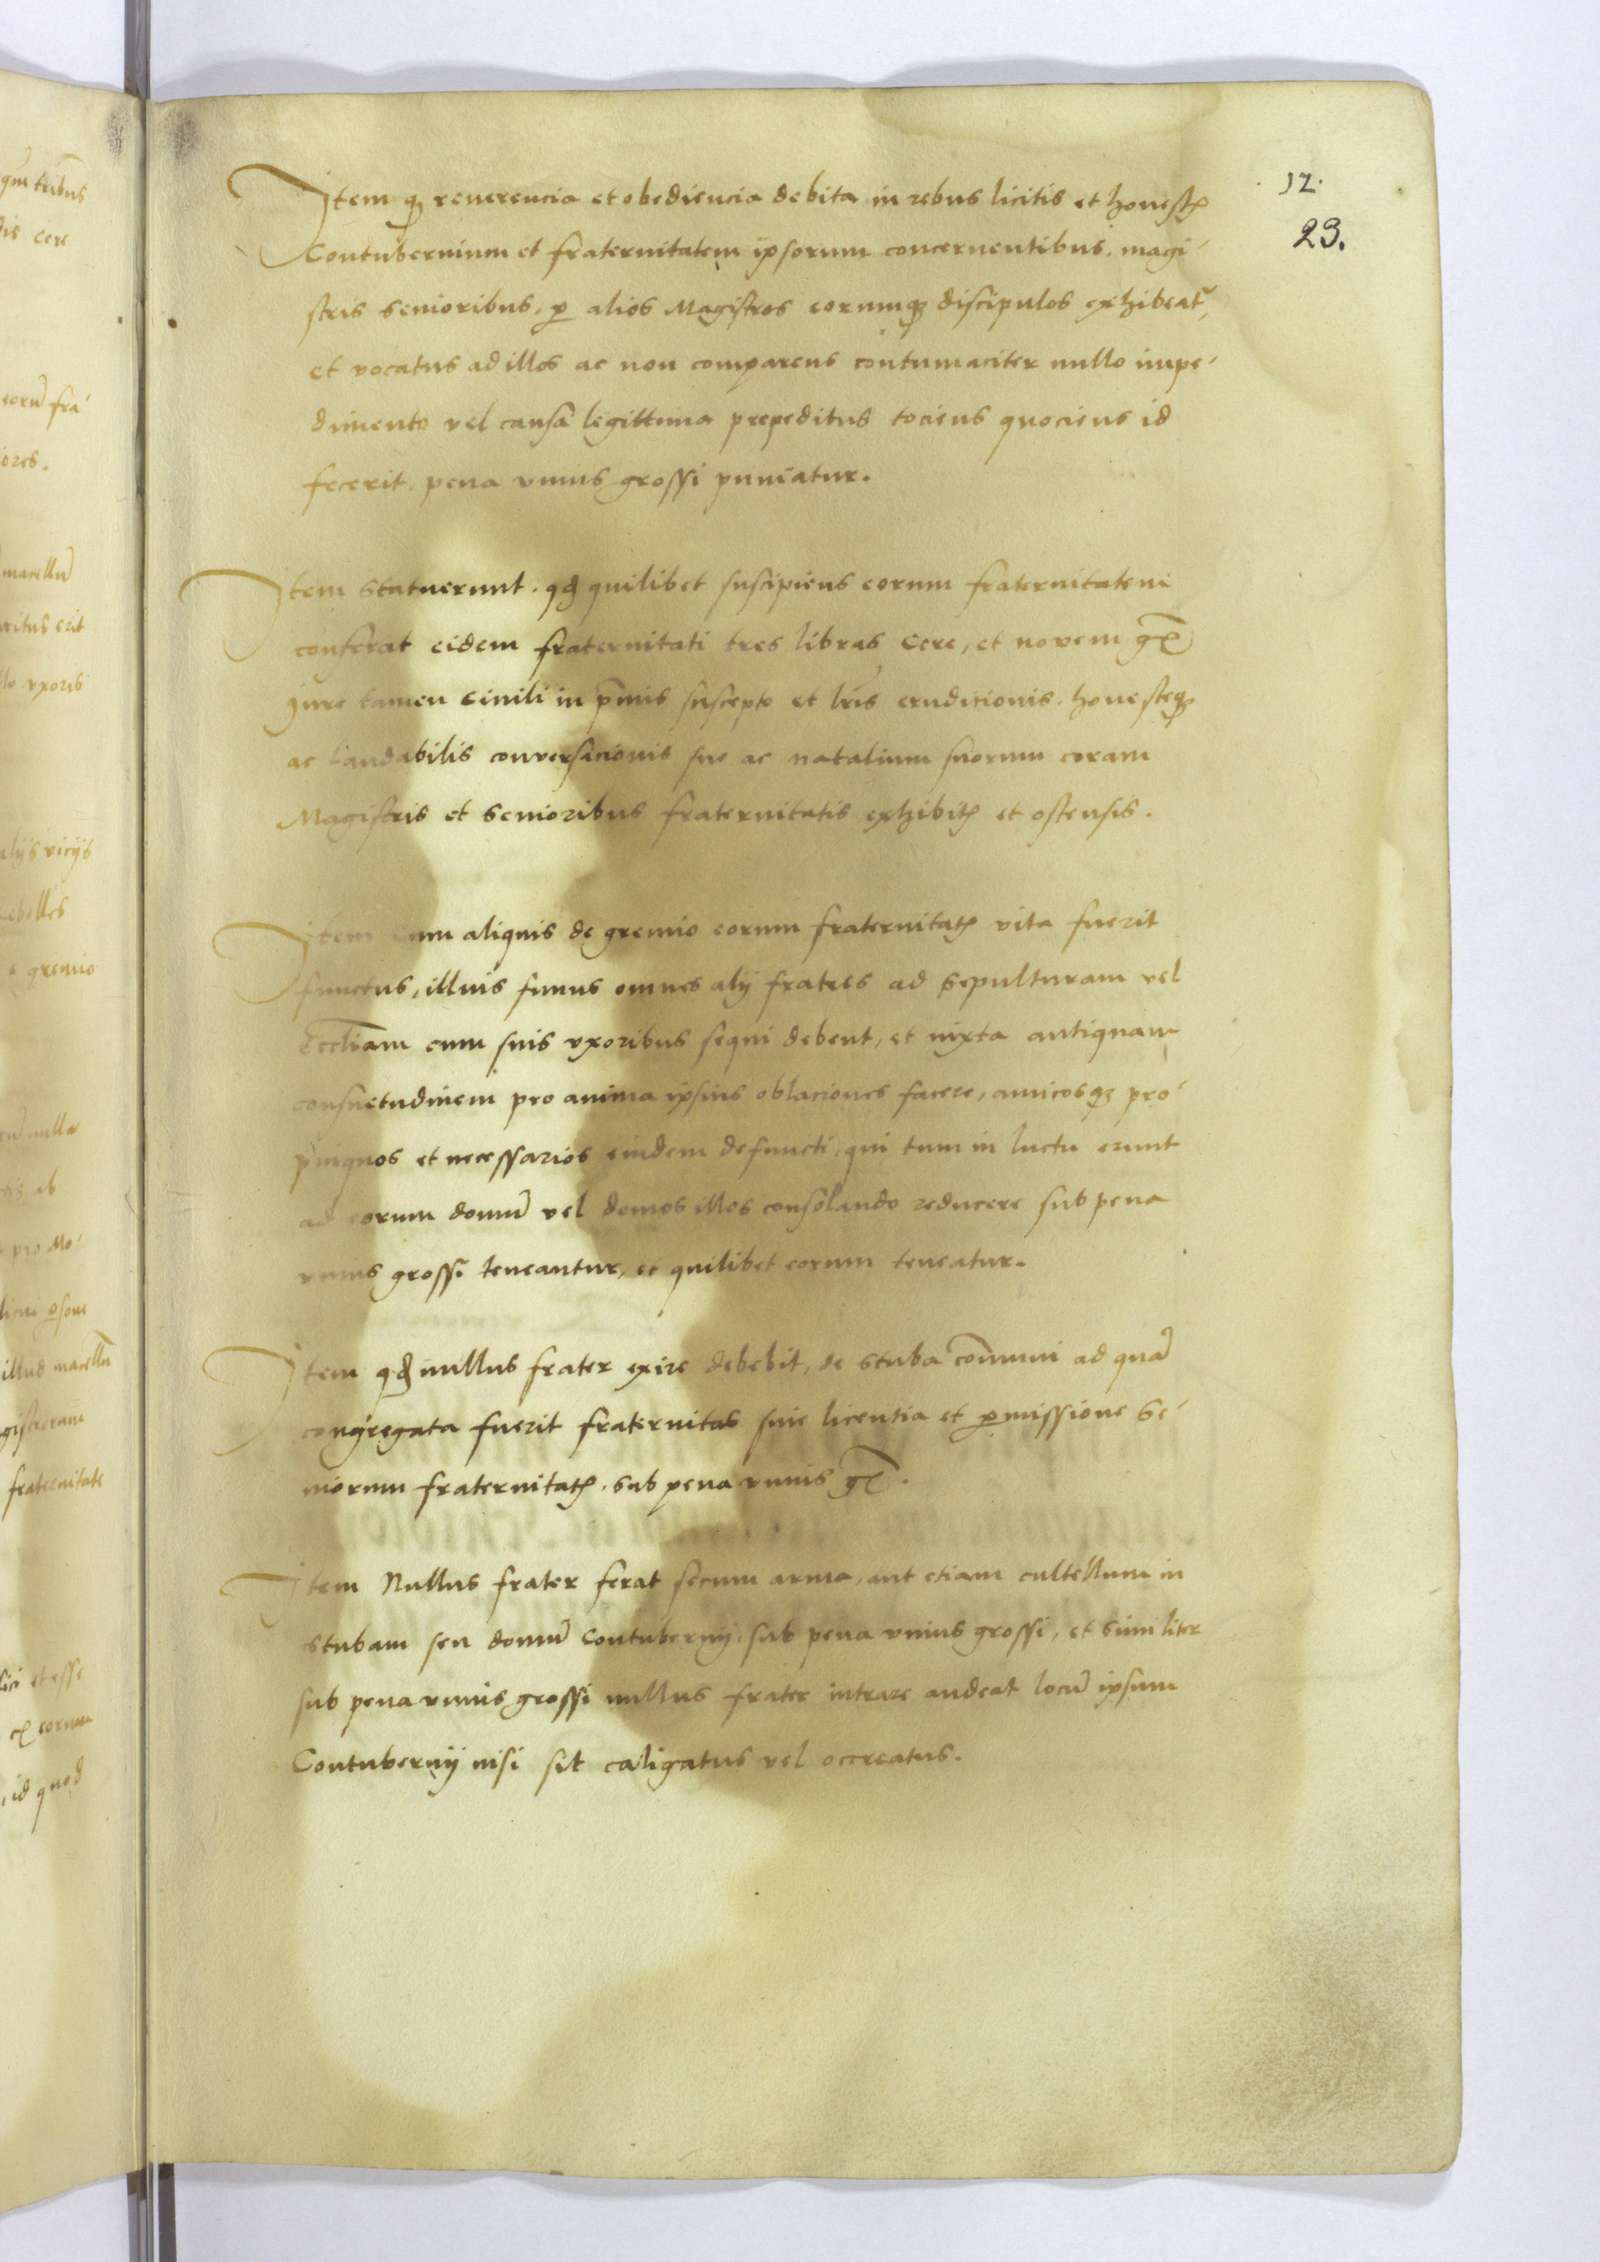 12.
23.
Item qꝫ reuerencia et obediencia debita in rebus licitis et honestꝭ
Contubernium et fraternitatem ipsorum concernentibus, magi-
stris senioribus, ꝑ alios Magistros eorumqꝫ discipulos exhibeat᷑,
et vocatus ad illos ac non comparens contumaciter nullo impe-
dimento vel causa legittima prepeditus tociens quociens id
fecerit, pena vnius grossi puniatur.
Item statuerunt. qđ quilibet suscipiens eorum fraternitatem
conferat eidem fraternitati tres libras Cere, et novem gꝭ
Jure tamen Civili in p̄mis suscepto et lr̄is erudicionis, honesteqꝫ
ac laudabilis conversacionis sue ac natalium suorum coram
Magistris et senioribus fraternitatis exhibitꝭ et ostensis.
Item cum aliquis de gremio eorum fraternitatꝭ vita fuerit
functus, illius funus omnes alij fratres ad sepulturam vel
Eccl̄iam cum suis vxoribus sequi debent, et iuxta antiquam
consuetudinem pro anima ipsius oblaciones facere, amicosqꝫ pro-
pinquos et necessarios eiusdem defuncti, qui tum in luctu erunt
ad eorum domū vel domos illos consolando reducere sub pena
vnius grossi teneantur, et quilibet eorum teneatur.
Item qđ nullus frater exire debebit, de stuba com̄uni ad quā
congregata fuerit fraternitas sine licentia et ꝑmissione se-
niorum fraternitatꝭ, sub pena vnius gꝭ.
Item Nullus frater ferat secum arma, aut etiam cultellum in
stubam seu domū Contubernij, sub pena vnius grossi, et similiter
sub pena vnius grossi nullus frater intrare audeat locū ipsum
Contubernij nisi sit caligatus vel occreatus.